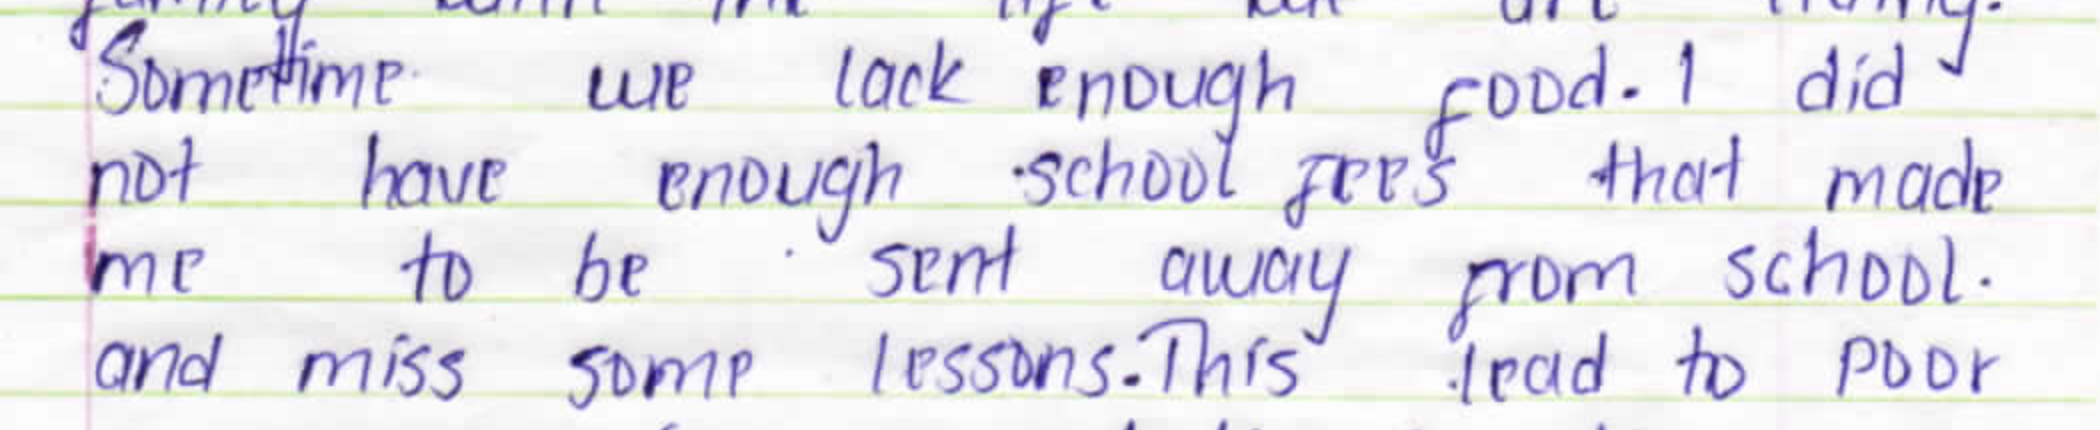 Sometime we lack enough food. I did
not have enough school fees that made
me to be sent away from school.
and miss some lessons. This lead to poor